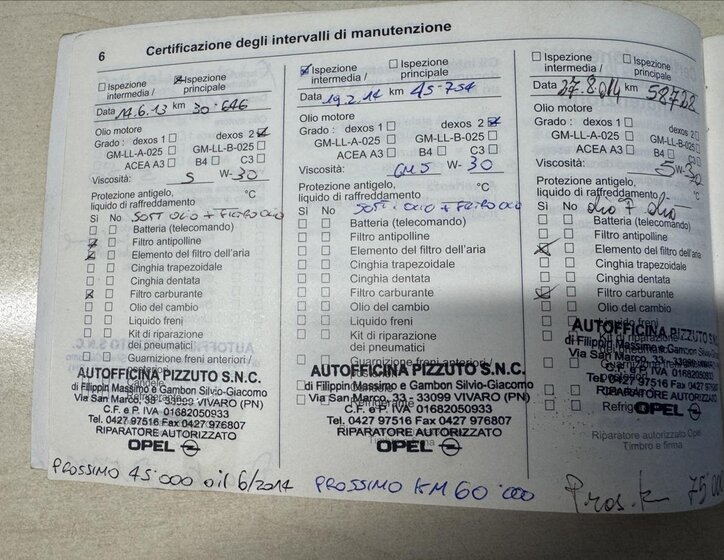 6 Certificazione degli intervalli di manutenzione
Ispezione intermedia / Ispezione principale
Data 14.6.13 km 30.646
Olio motore
Grado : dexos 1 dexos 2
GM-LL-A-025 GM-LL-B-025
ACEA A3 B4 C3
Viscosità: 5 W- 30
Protezione antigelo, °C
liquido di raffreddamento
Sì No SOST OLIO + FILTRO OLIO
Batteria (telecomando)
Filtro antipolline
Elemento del filtro dell'aria
Cinghia trapezoidale
Cinghia dentata
Filtro carburante
Olio del cambio
Liquido freni
Kit di riparazione
dei pneumatici
Guarnizione freni anteriori /
Candele
AUTOFFICINA PIZZUTO S.N.C.
di Filippin Massimo e Gambon Silvio-Giacomo
Via San Marco, 33 - 33099 VIVARO (PN)
C.F. e P. IVA 01682050933
Tel. 0427 97516 Fax 0427 976807
RIPARATORE AUTORIZZATO
OPEL
PROSSIMO 45'000 o il 6/2014
Ispezione intermedia / Ispezione principale
Data 19.2.14 km 45-754
Olio motore
Grado : dexos 1 dexos 2
GM-LL-A-025 GM-LL-B-025
ACEA A3 B4 C3
Viscosità: W- 30
Protezione antigelo, °C
liquido di raffreddamento
Sì No SOST. OLIO + FILTRO OLIO
Batteria (telecomando)
Filtro antipolline
Elemento del filtro dell'aria
Cinghia trapezoidale
Cinghia dentata
Filtro carburante
Olio del cambio
Liquido freni
Kit di riparazione
dei pneumatici
Guarnizione freni anteriori /
AUTOFFICINA PIZZUTO S.N.C.
di Filippin Massimo e Gambon Silvio-Giacomo
Via San Marco, 33 - 33099 VIVARO (PN)
Refrigerante
C.F. e P. IVA 01682050933
Tel. 0427 97516 Fax 0427 976807
RIPARATORE AUTORIZZATO
Timbro e firma
OPEL
PROSSIMO KM 60'000
Ispezione intermedia / Ispezione principale
Data 27.8.014 km 58728
Olio motore
Grado : dexos 1 dexos 2
GM-LL-A-025 GM-LL-B-025
ACEA A3 B4 C3
Viscosità: 5 W- 30
Protezione antigelo, °C
liquido di raffreddamento
Sì No olio olio
Batteria (telecomando)
Filtro antipolline
Elemento del filtro dell'aria
Cinghia trapezoidale
Cinghia dentata
Filtro carburante
Olio del cambio
Liquido freni
AUTOFFICINA PIZZUTO S.N.C.
di Filippin Massimo e Gambon Silvio-Giacomo
Via San Marco, 33 - 33099 VIVARO
Tel. 0427 97516 Fax 0427
OPEL
Riparatore autorizzato Opel
Timbro e firma
Pros. k 75'0